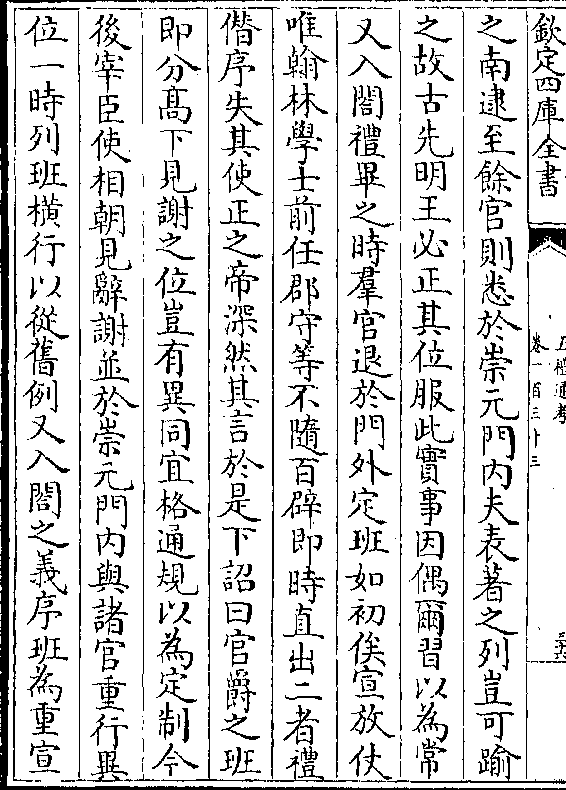 欽定四庫全書
五禮通考
卷一百三十三
之南逮至餘官則悉於崇元門内夫表著之列豈可踰
之故古先明王必正其位服此實事因偶爾習以為常
又入閤禮畢之時羣官退於門外定班如初俟宣放仗
唯翰林學士前任郡守等不隨百辟即時直出二者禮
僭序失其使正之帝深然其言於是下詔曰官爵之班
即分髙下見謝之位豈有異同宜格通規以為定制今
後宰臣使相朝見辭謝並於崇元門内與諸官重行異
位一時列班橫行以從舊例又入閤之義序班為重宣